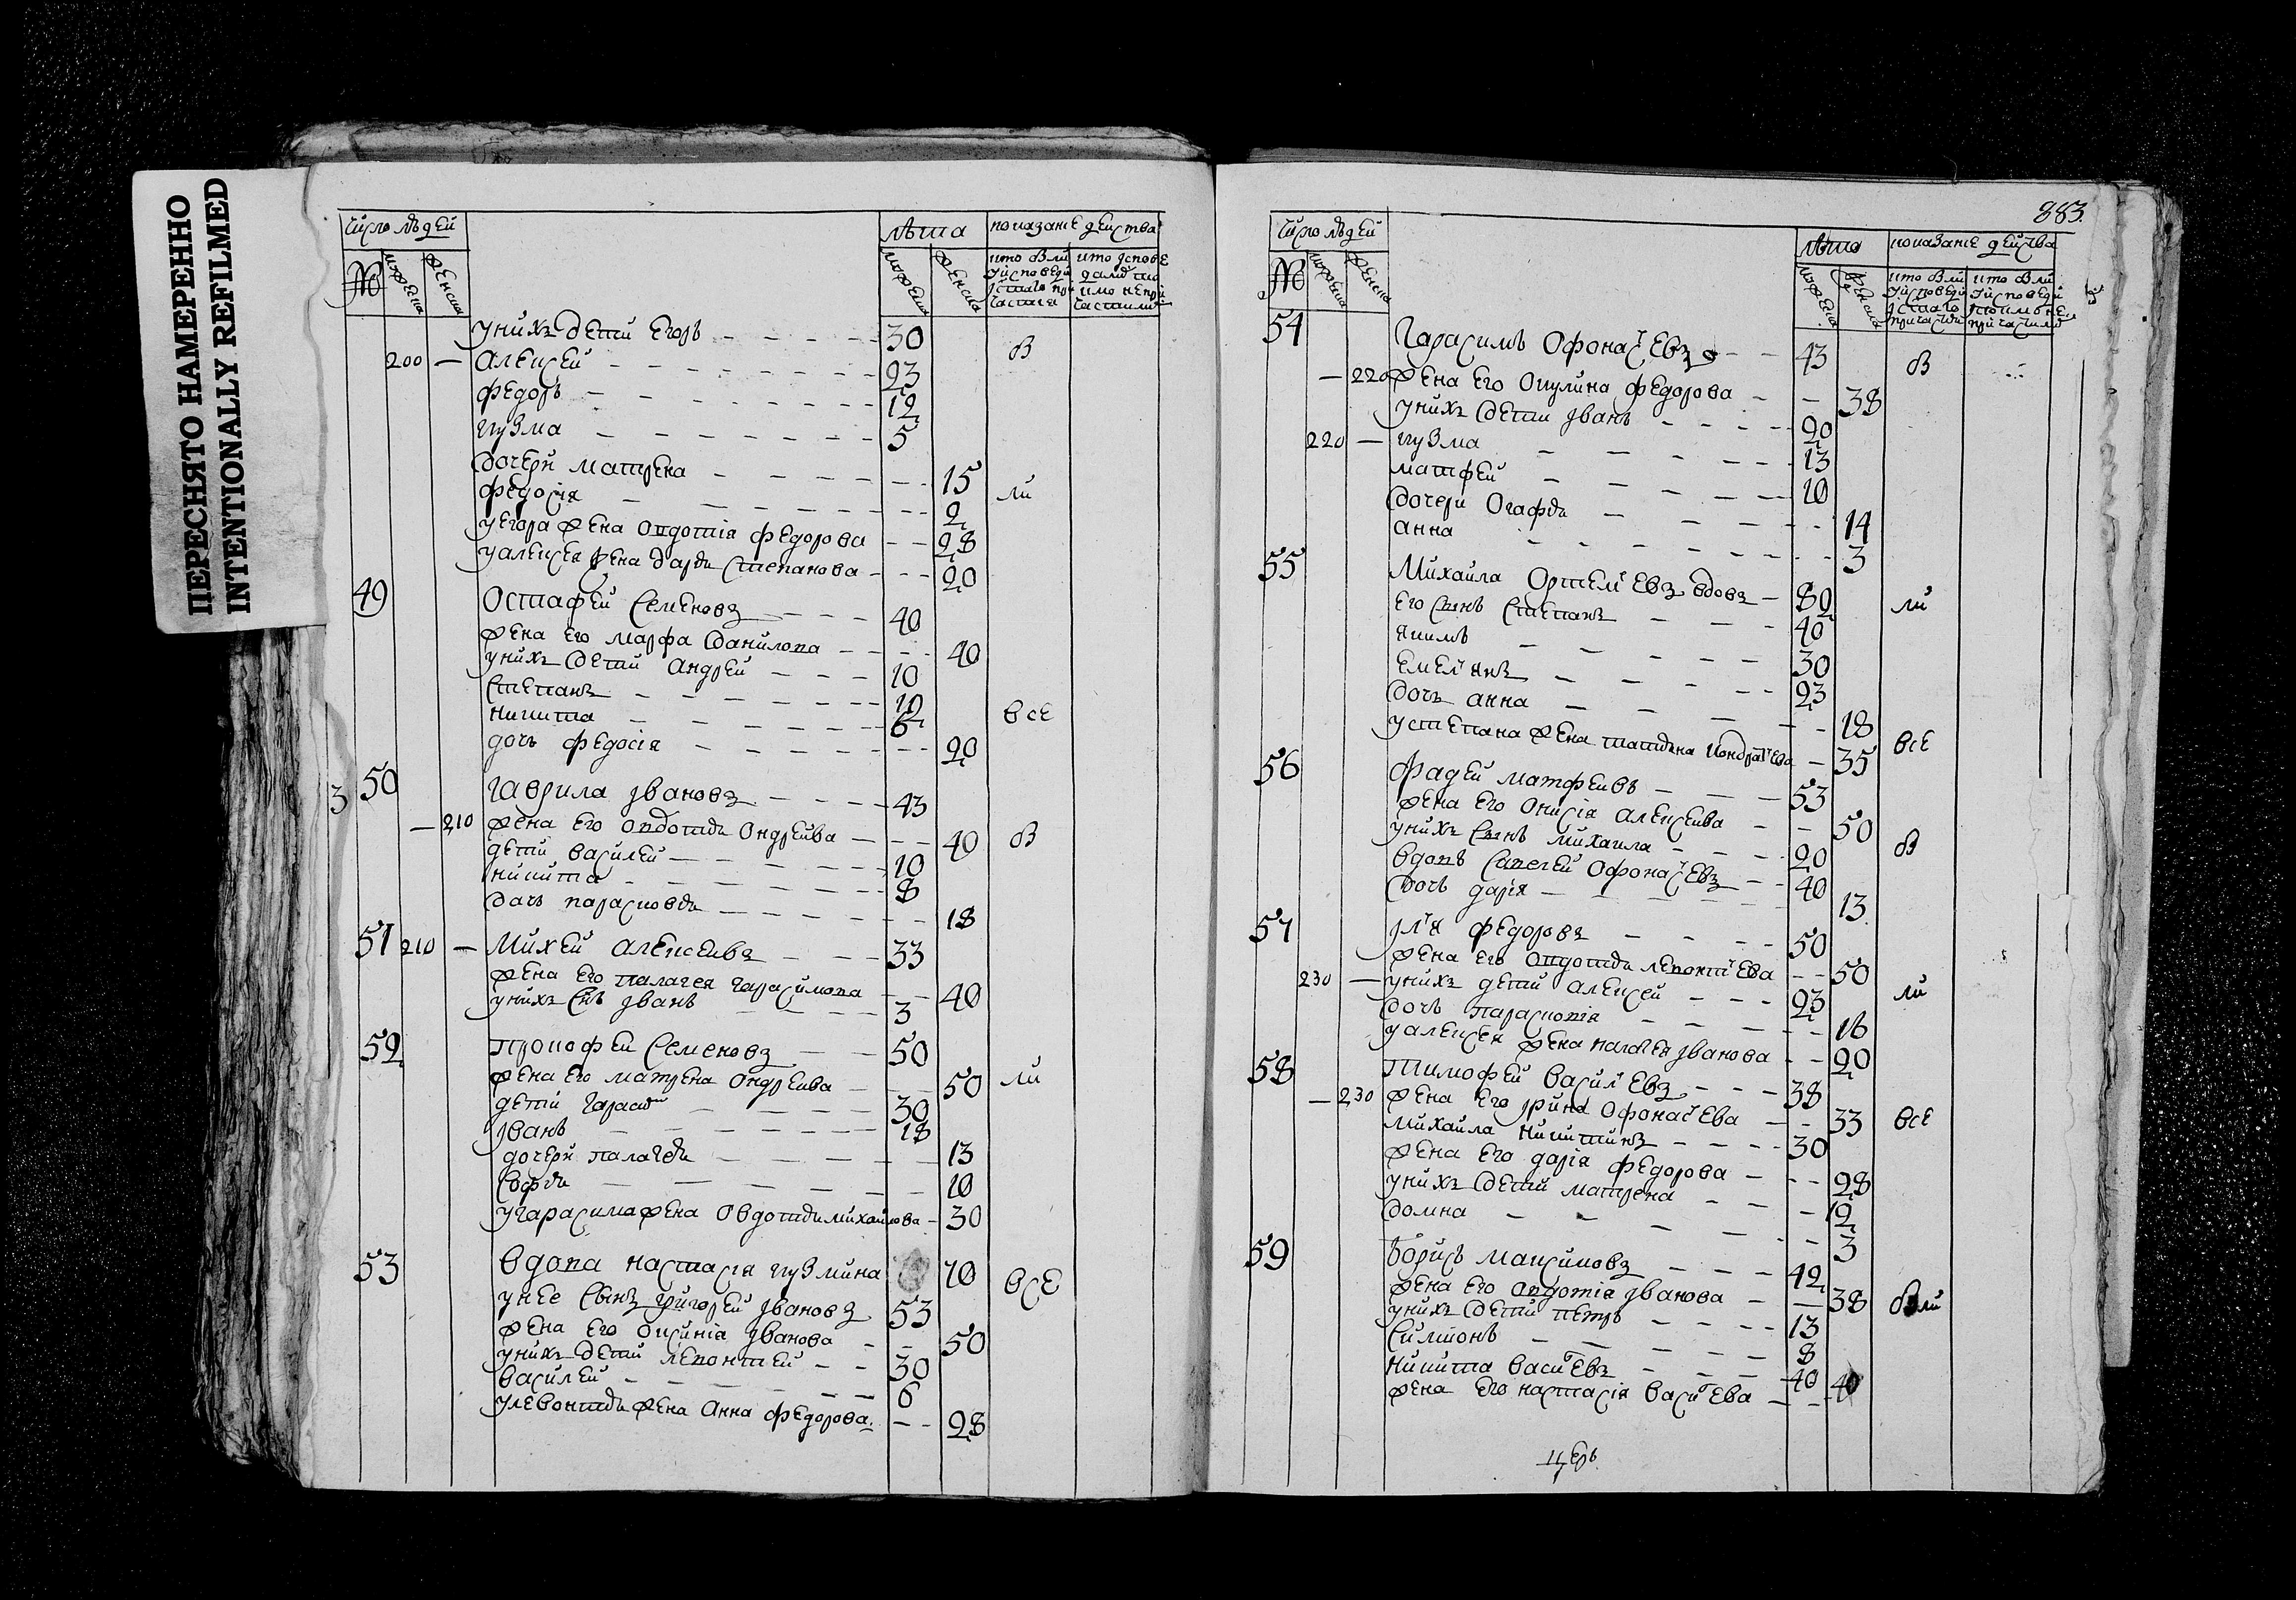 ПЕРЕСНЯТО НАМЕРЕННО
INTENTIONALLY REFILMED
число людей
лѣта
показанїе действа
№
мужеска
женска
мужеска
женска
у нихъ дети Егоръ 30
200 — Алексей 23
Федоръ 12
Кузма 5
дочери Матрена 15
Федосїя 2
у Егора жена Овдотия Федорова 28
у Алексея жена Дарья Степанова 20
49 Остафей Семеновъ 40
жена его Марфа Данилова 40
у нихъ дети Андрей 10
Степанъ
Никита 6
дочь Федосiя 20
3 50 Гаврила Jвановъ 43
— 210 жена его Овдотья Ондреива 40
дети Василей 10
Никита 8
дочь Парасковья 18
51 210 — Михей Алексеивъ 33
жена его Палагея Гарасимова 40
у нихъ сїъ Jванъ 3
52 Прокофей Семеновъ 50
жена его Матрена Ондреива 50
дети Гарасим 30
Jванъ 18
дочери Палагея 13
Софья 10
у Гарасима жена Овдотья Михайлова 30
53 вдова Настасия Кузмина 70
у нее сынъ Григорей Jвановъ 53
жена его Оксинiя Jванова 50
у нихъ дети Левонтей 30
Василей 6
у Левонтья жена Анна Федорова 28
все
все
883
число людей
лѣта
показанїе действа
№
мужеска
женска
мужеска
женска
54 Гарасимъ Офонасьевъ 43
— 220 жена его Окулина Федорова 38
у нихъ дети Jванъ 20
220 — Кузма 13
Матфей 10
дочери Огафья 14
Анна 3
55 Михайла Ортемьевъ вдовъ 80
его сынъ Степанъ 40
Якимъ 30
Емельянъ 23
дочь Анна 18
у Степана жена Татьяна Кондратьева 35
56 Фадей Матфеивъ 53
жена его Онисiя Алексеива 50
у нихъ сынъ Михаила 20
вдовъ Савелей Офонасьевъ 40
дочь Дарiя 13
57 Jлья Федоровъ 50
жена его Овдотья Левонтьева 50
230 — у нихъ дети Алексей 23
дочь Парасковiя 16
у Алексея жена Палагея Jванова 20
58 Тимофей Васильевъ 38
— 230 жена его Jрина Офонасьева 33
Михайла Никитинъ 30
жена его Дарiя Федорова 28
у нихъ дети Матрена 12
Домна 3
59 Борисъ Максимовъ 42
жена его Овдотiя Jванова 38
у нихъ дети Петръ 13
Симионъ 8
Никита Васильевъ 40
жена его Настасiя Васильева 40
все
все